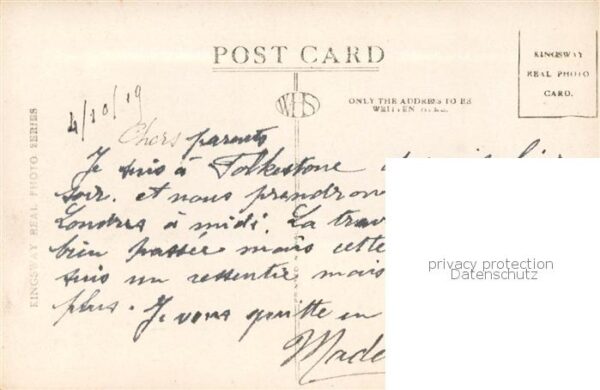 POST CARD
KINGSWAY
REAL PHOTO
CARD.
WHS
ONLY THE ADDRESS TO BE
WRITTEN HERE.
KINGSWAY REAL PHOTO SERIES
4/10/19
Chers parents
Je suis à Folkestone depuis hier
soir. et nous prendrons
Londres à midi. La trav
bien passée mais cette
suis un ressentir mais
plus. Je vous quitte en
Made
privacy protection
Datenschutz